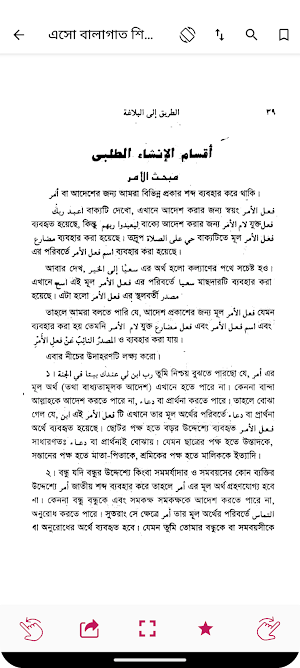 এসো বালাগাত শি...
الطريق إلى البلاغة ٣٩
أقسام الإنشاء الطلبي
مبحث الأمر
أمر বা আদেশের জন্য আমরা বিভিন্ন প্রকার শব্দ ব্যবহার করে থাকি।
اعبد ربك বাক্যটি দেখো, এখানে আদেশ করার জন্য স্বয়ং فعل الأمر
ব্যবহৃত হয়েছে, কিন্তু ليعبدوا ربهم বাক্যে আদেশ করার জন্য لام الأمر যুক্ত فعل
مضارع ব্যবহার করা হয়েছে। তদ্রূপ حي على الصلاة বাক্যটিতে মূল فعل الأمر
এর পরিবর্তে اسم فعل الأمر ব্যবহার করা হয়েছে।
আবার দেখ, سعيا إلى الخير এর অর্থ হলো কল্যাণের পথে সচেষ্ট হও।
এখানে মূল فعل الأمر এর পরিবর্তে سعيا মাছদারটি ব্যবহার করা
হয়েছে। এটা হলো فعل الأمر এর স্থলবর্তী مصدر
তাহলে আমরা বলতে পারি যে, আদেশ প্রকাশের জন্য মূল فعل الأمر যেমন
ব্যবহার করা হয় তেমনি لام الأمر যুক্ত فعل مضارع এবং اسم فعل الأمر এবং
المصدر النائب عن فعل الأمر ও ব্যবহার করা যায়।
এবার নীচের উদাহরণটি লক্ষ্য করো।
১। رب ابن لي عندك بيتا في الجنة তুমি নিশ্চয় বুঝতে পারছো যে, أمر এর
মূল অর্থ (তথা বাধ্যতামূলক আদেশ) এখানে হতে পারে না। কেননা বান্দা
আল্লাহকে আদেশ করতে পারে না, دعاء বা প্রার্থনা করতে পারে। তাহলে বোঝা
গেল যে, ابن এই فعل الأمر টি এখানে তার মূল অর্থের পরিবর্তে دعاء বা প্রার্থনা
অর্থে ব্যবহৃত হয়েছে। ছোটর পক্ষ হতে বড়র উদ্দেশ্যে ব্যবহৃত فعل الأمر
সাধারণতঃ دعاء বা প্রার্থনাই বোঝায়। যেমন ছাত্রের পক্ষ হতে উস্তাদকে,
সন্তানের পক্ষ হতে মাতা-পিতাকে, শ্রমিকের পক্ষ হতে মালিককে ইত্যাদি।
২। বন্ধু যদি বন্ধুর উদ্দেশ্যে কিংবা সমমর্যাদার ও সমবয়সের কোন ব্যক্তির
উদ্দেশ্যে أمر জাতীয় শব্দ ব্যবহার করে তাহলে أمر এর মূল অর্থ গ্রহণযোগ্য হবে
না। কেননা বন্ধু বন্ধুকে এবং সমকক্ষ সমকক্ষকে আদেশ করতে পারে না,
অনুরোধ করতে পারে। সুতরাং সে ক্ষেত্রে أمر তার মূল অর্থের পরিবর্তে التماس
বা অনুরোধের অর্থে ব্যবহৃত হবে। যেমন তুমি তোমার বন্ধুকে বা সমবয়সীকে